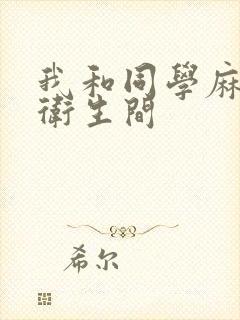 我和同學麻
衛生間
希尔